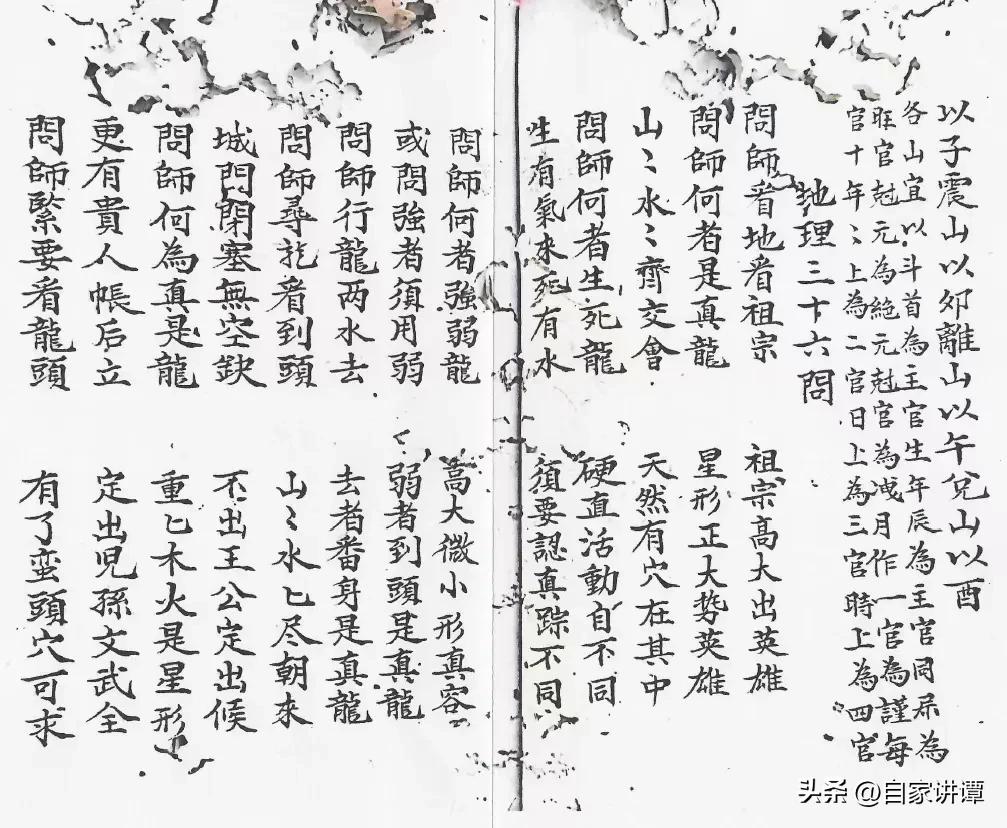 以子震山以卯離山以午兌山以酉
各山宜以斗首為主官生年辰為主官同屌為
旺官尅元為絕元尅官為洩月作一官為謹每
官十年〻上為二官日上為三官時上為四官
地理三十六問
問師看地看祖宗 祖宗高大出英雄
問師何者是真龍 星形正大势英雄
山〻水〻齊交會 天然有穴在其中
問師何者生死龍 硬直活動自不同
生有氣來死有水 須要認真踪不同
問師何者強弱龍 高大微小形真容
或問強者須用弱 弱者到頭是真龍
問師行龍两水去 去者番身是真龍
問師尋龍看到頭 山〻水匕尽朝來
城門閉塞無空缺 不出王公定出候
問師何為真是龍 重匕木火是星形
更有貴人帳后立 定出児孫文武全
問師緊要看龍頭 有了蛮頭穴可求
头条 @自家讲谭